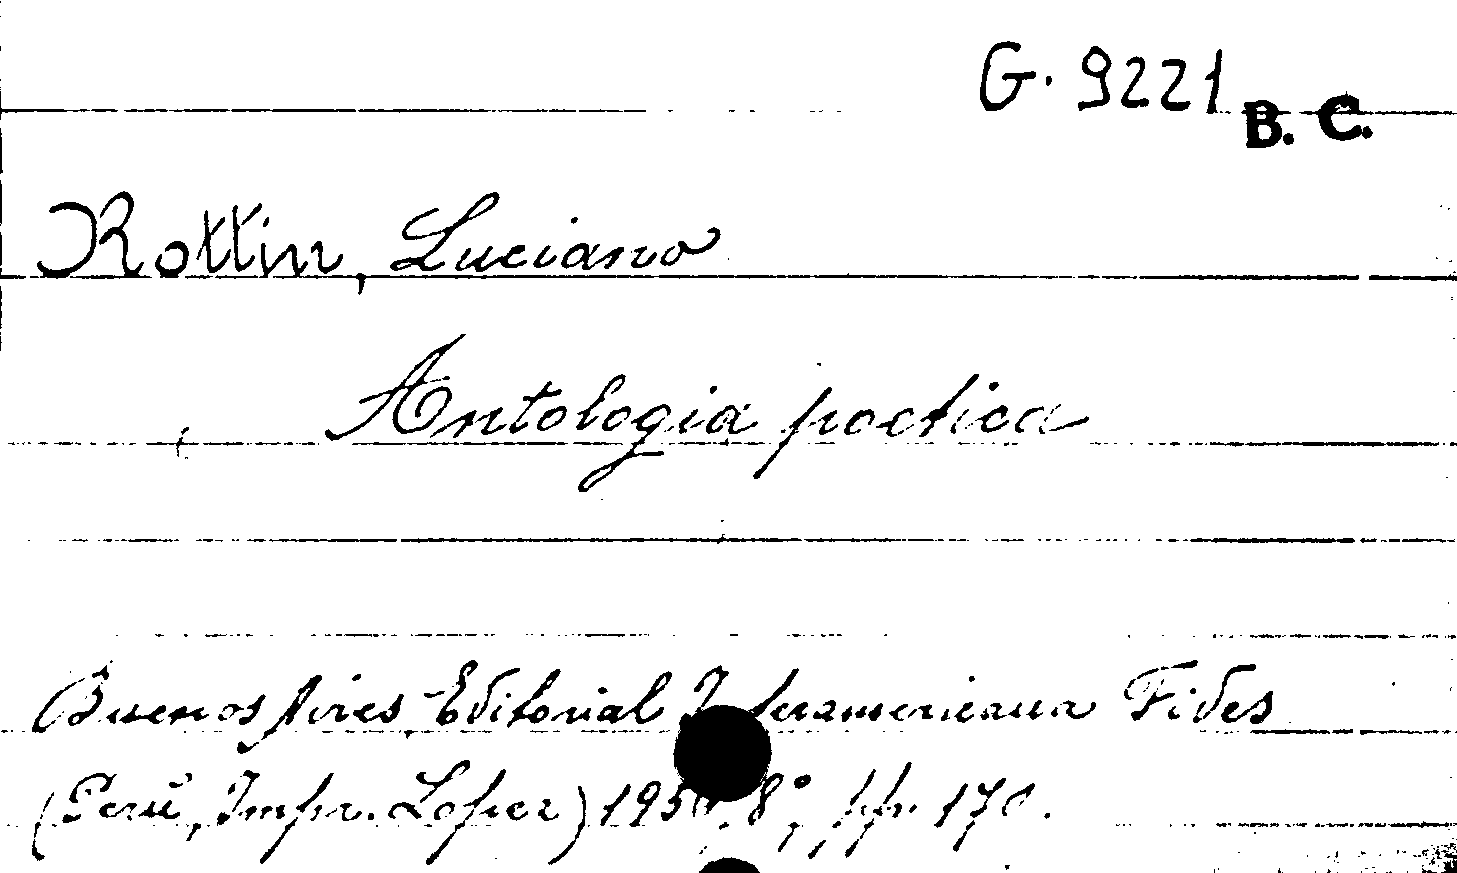 G. 9221 B. C.
Rottin, Luciano
Antologia poetica
Buenos Aires, Editorial Interamericana Fides
(Perù, Impr. Lopez) 195 8°, pp. 170.